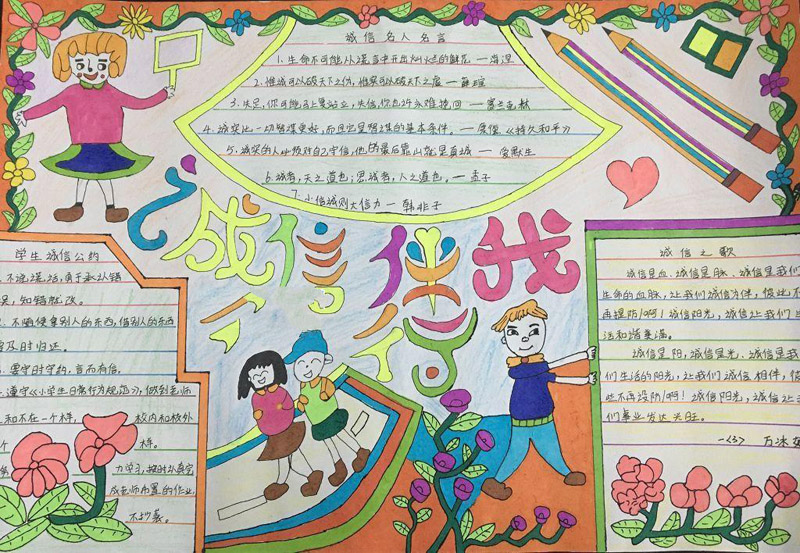 诚信名人名言
1. 生命不可能从谎言中开出灿烂的鲜花 — 海涅
2. 惟诚可以破天下之伪,惟实可以破天下之虚 — 薛瑄
3. 失足,你可能马上复站立,失信,你也许永难挽回 — 富兰克林
4. 诚实比一切智谋更好,而且它是智谋的基本条件。— 康德《持久和平》
5. 诚实的人必须对自己守信,他的最后靠山就是真诚 — 爱默生
6. 诚者,天之道也;思诚者,人之道也。— 孟子
7. 小信诚则大信立 — 韩非子
诚信伴我行
学生诚信公约
不说谎话,勇于承认错
误,知错就改。
不随便拿别人的东西,借别人的东西
及时归还。
要守时守约,言而有信。
遵守《小学生日常行为规范》,做到老师
和不在一个样,校内和校外
个 样。
力学习,按时认真完
成老师布置的作业,
不抄袭。
诚信之歌
诚信是血,诚信是脉,诚信是我们
生命的血脉,让我们诚信为伴,彼此不
再提防!啊!诚信阳光,诚信让我们生
活和谐美满。
诚信是阳,诚信是光,诚信是我
们生活的阳光,让我们诚信相伴,彼
此不再设防!啊!诚信阳光,诚信让
们事业发达兴旺。
一<3> 万冰